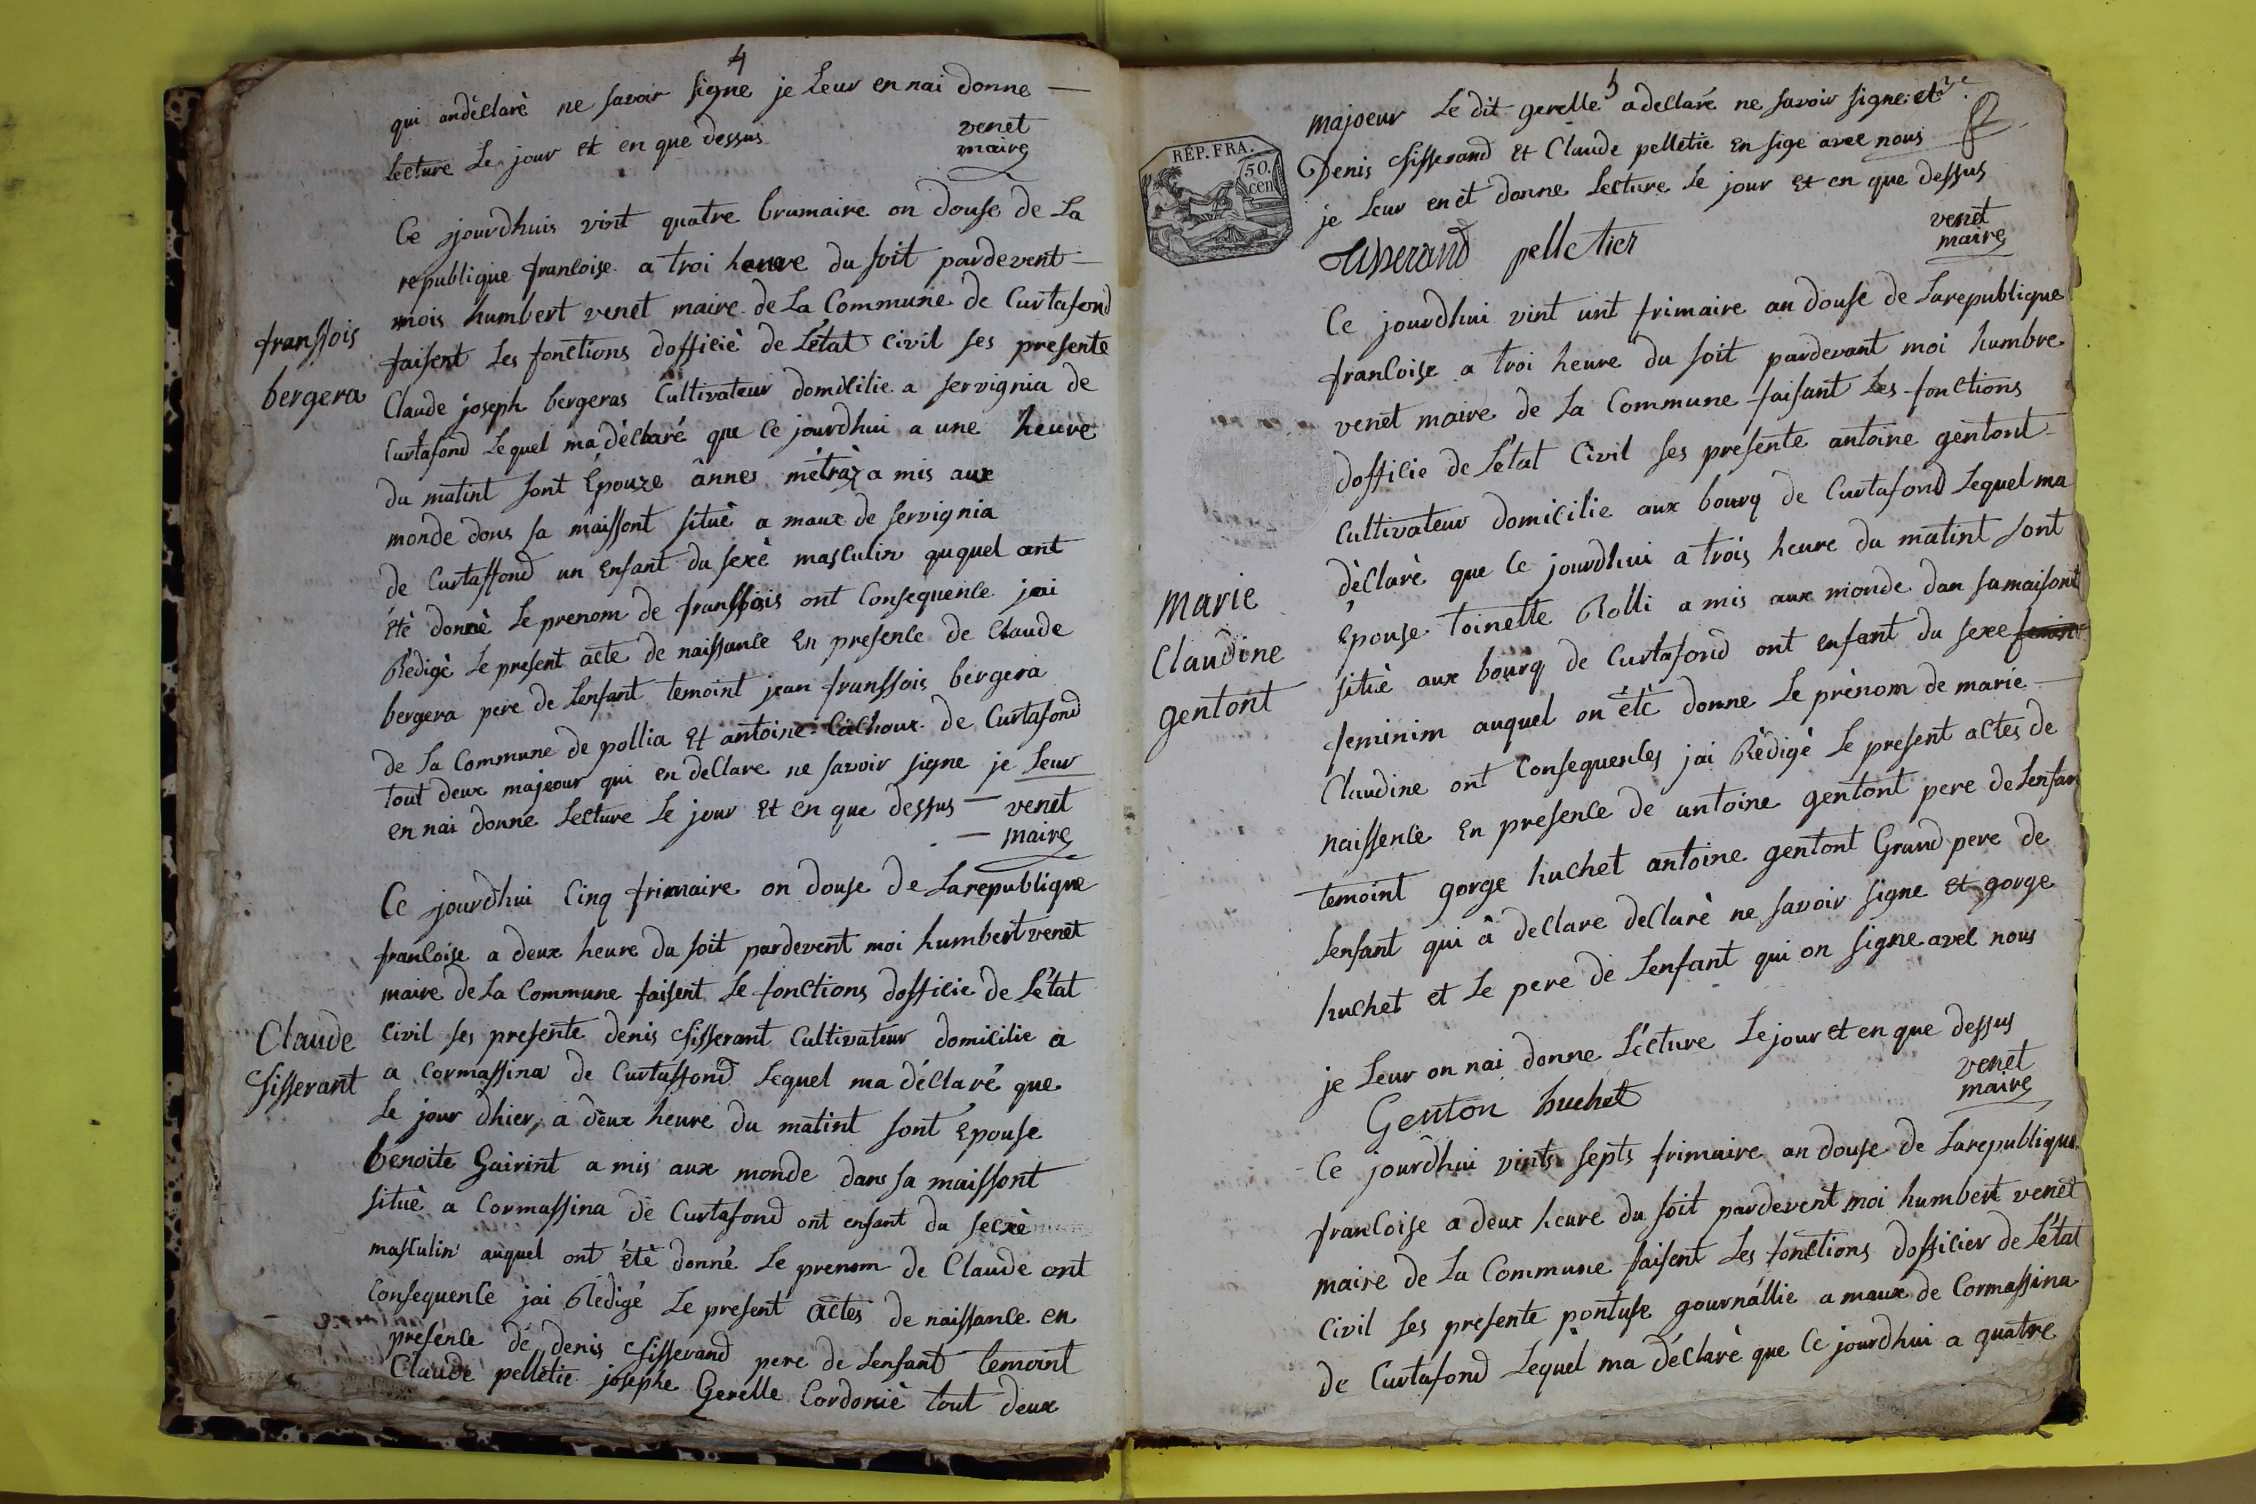 4
qui andéclaré ne savoir signe je Leur en nai donne —
Lecture Le jour et en que dessus
venet
maire
Ce jourdhuis vint quatre brumaire on douse de La
republique francoise a troi heure du soit pardevent
mois humbert venet maire de La Commune de Curtafond
faisent Les fonctions dofficiè de L'état Civil ses presente
franssois
bergera
Claude joseph bergeras Cultivateur domicilie a servignia de
Curtafond Lequel ma déclaré que Ce jourdhui a une heure
du matint sont Epouze annes métraz a mis aux
monde dans sa maissont situè a maux de servignia
de Curtaffond un Enfant du sexè masculin auquel ont
été donnè Le prenom de franssois ont Consequence jai
Rèdigè Le present acte de naissance En presence de Claude
bergera pere de Lenfant temoint jean franssois bergera
de La Commune de pollia Et antoine Cathoux de Curtafond
tout deux majeour qui en declare ne savoir signe je Leur
en nai donne Lecture Le jour Et en que dessus —
venet
— maire
Ce jourdhui Cinq frimaire on douse de Larepublique
francoise a deux heure du soit pardevent moi humbert venet
maire de La Commune faisent Le fonctions dofficie de L'état
Claude
Tisserant
Civil ses presente denis Tisserant Cultivateur domicilie a
a Cormassina de Curtaffond Lequel ma déclaré que
Le jour dhier, a deux heure du matint sont Epouse
benoite Gairint a mis aux monde dans sa maissont
situè a Cormassina de Curtafond ont enfant du secxè
masculin auquel ont étè donné Le prenom de Claude ont
Consequence jai Rédigé Le present actes de naissance en
presence de denis Tisserand pere de Lenfant temoint
Claude pelletie josephe Gerelle Cordoniè tout deux
5
majoeur Le dit gerelle a declaré ne savoir signe et
Denis Tisserand Et Claude pelletie En sige avec nous
je Leur en et donne Lecture Le jour Et en que dessus
RÉP. FRA.
50.
cen
Tisserand pelletier
venet
maire
Ce jourdhui vint unt frimaire an douse de Larepublique
francoise a troi heure du soit pardevant moi humbre
venet maire de La Commune faisant Les fonctions
dofficie de L'état Civil ses presente antoine gentont
Cultivateur domicilie aux bourg de Curtafond Lequel ma
dèclarè que Ce jourdhui a trois heure du matint sont
Marie
Claudine
gentont
Epouse toinette Rolli a mis aux monde dan sa maisont
situè aux bourg de Curtafond ont enfant du sexe
feminim auquel on étè donne Le prènom de marie —
Claudine ont Consequences jai Rèdigè Le present actes de
naissence En presence de antoine gentont pere de Lenfan
temoint gorge huchet antoine gentont Grand pere de
Lenfant qui à declare declarè ne savoir signe Et gorge
huchet et Le pere de Lenfant qui on signe avec nous
je Leur on nai donne Lécture Lejour et en que dessus
venet
maire
Genton huchet
Ce jourdhui vints septs frimaire an douse de Larepublique
francoise a deux heure du soit pardevent moi humbert venet
maire de La Commune faisent Les fonctions dofficier de L'état
Civil ses presente pontuse gournàllie a maux de Cormassina
de Curtafond Lequel ma déclarè que Ce jourdhui a quatre